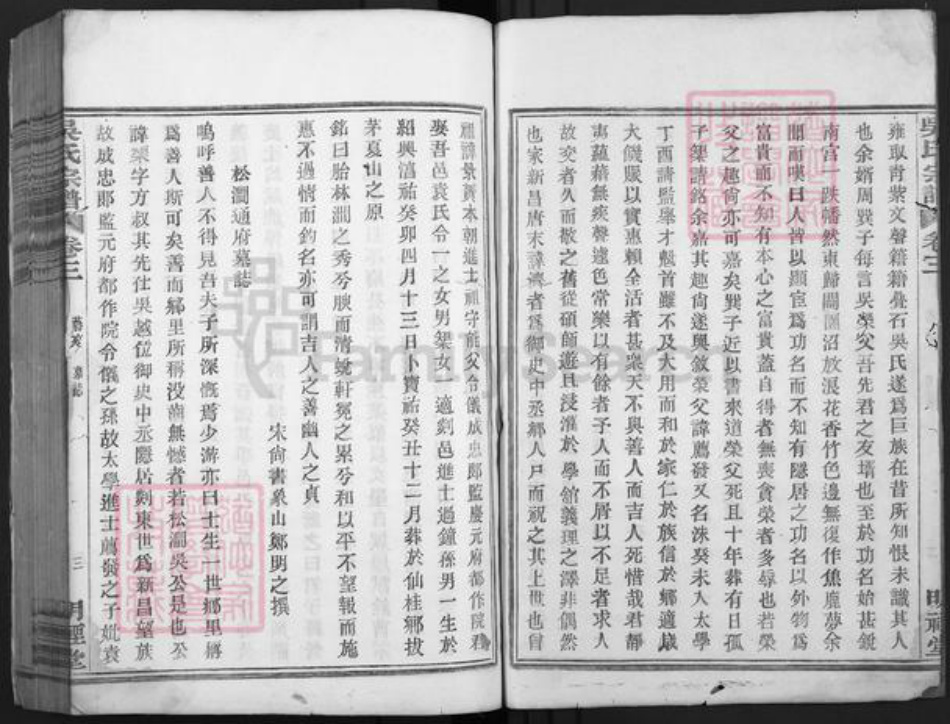 雍取青紫文聲籍籍疊石吳氏遂爲巨族在昔所知恨未識其人
也余婿周巽子每言吳榮父吾先君之友壻也至於功名始甚銳
南宮一跌幡然東歸闢園沼放浪花香竹色邊無復作焦鹿夢余
聞而嘆曰人皆以顯宦爲功名而不知有隱居之功名以外物爲
富貴而不知有本心之富貴蓋自得者無喪貪榮者多辱也若榮
父之趣尚亦可嘉矣巽子近以書來道榮父死且十年葬有日孤
子榘請銘余嘉其趣尚遂與敘榮父諱薦發又名洙癸未入太學
丁酉請監舉才魁首雖不及大用而和於家仁於族信於鄉適歲
大饑賑以實惠賴全活者甚衆天不與善人而吉人死惜哉君靜
夷蘊藉無疾聲遽色常樂以有餘者予人而不屑以不足者求人
故交者久而敬之舊從碩師遊且浸淮於學館義理之澤非偶然
也家新昌唐末諱濟者爲御史中丞鄉人戶而祝之其上世也曾
祖諱景賁本朝進士祖守祐父令儀成忠郎監慶元府都作院君
娶吾邑袁氏令一之女男榘女一適剡邑進士過鐘孫男一生於
紹興淳祐癸卯四月十三日卜寶祐癸丑十二月葬於仙桂鄉拔
茅夏山之原
銘曰胎林澗之秀兮腴而清蛻軒冕之累兮和以平不望報而施
惠不過情而釣名亦可謂吉人之善幽人之貞
宋尚書象山鄭明之撰
松澗通府墓誌
嗚呼善人不得見吾夫子所深慨焉少游亦曰士生一世鄉里稱
爲善人斯可矣善而鄉里所稱没齒無憾者若松澗吳公是也公
諱榘字方叔其先仕吳越位御史中丞隱居剡東世爲新昌望族
故成忠郎監元府都作院令儀之孫故太學進士薦發之子妣袁
吳氏宗譜
卷之二
墓誌
三
明經堂
FamilySearch